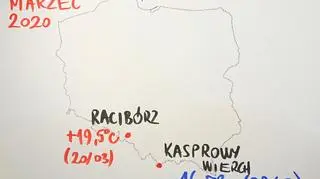 MARZEC
2020
RACIBÓRZ
+19,5°C
(20/03)
KASPROWY
WIERCH